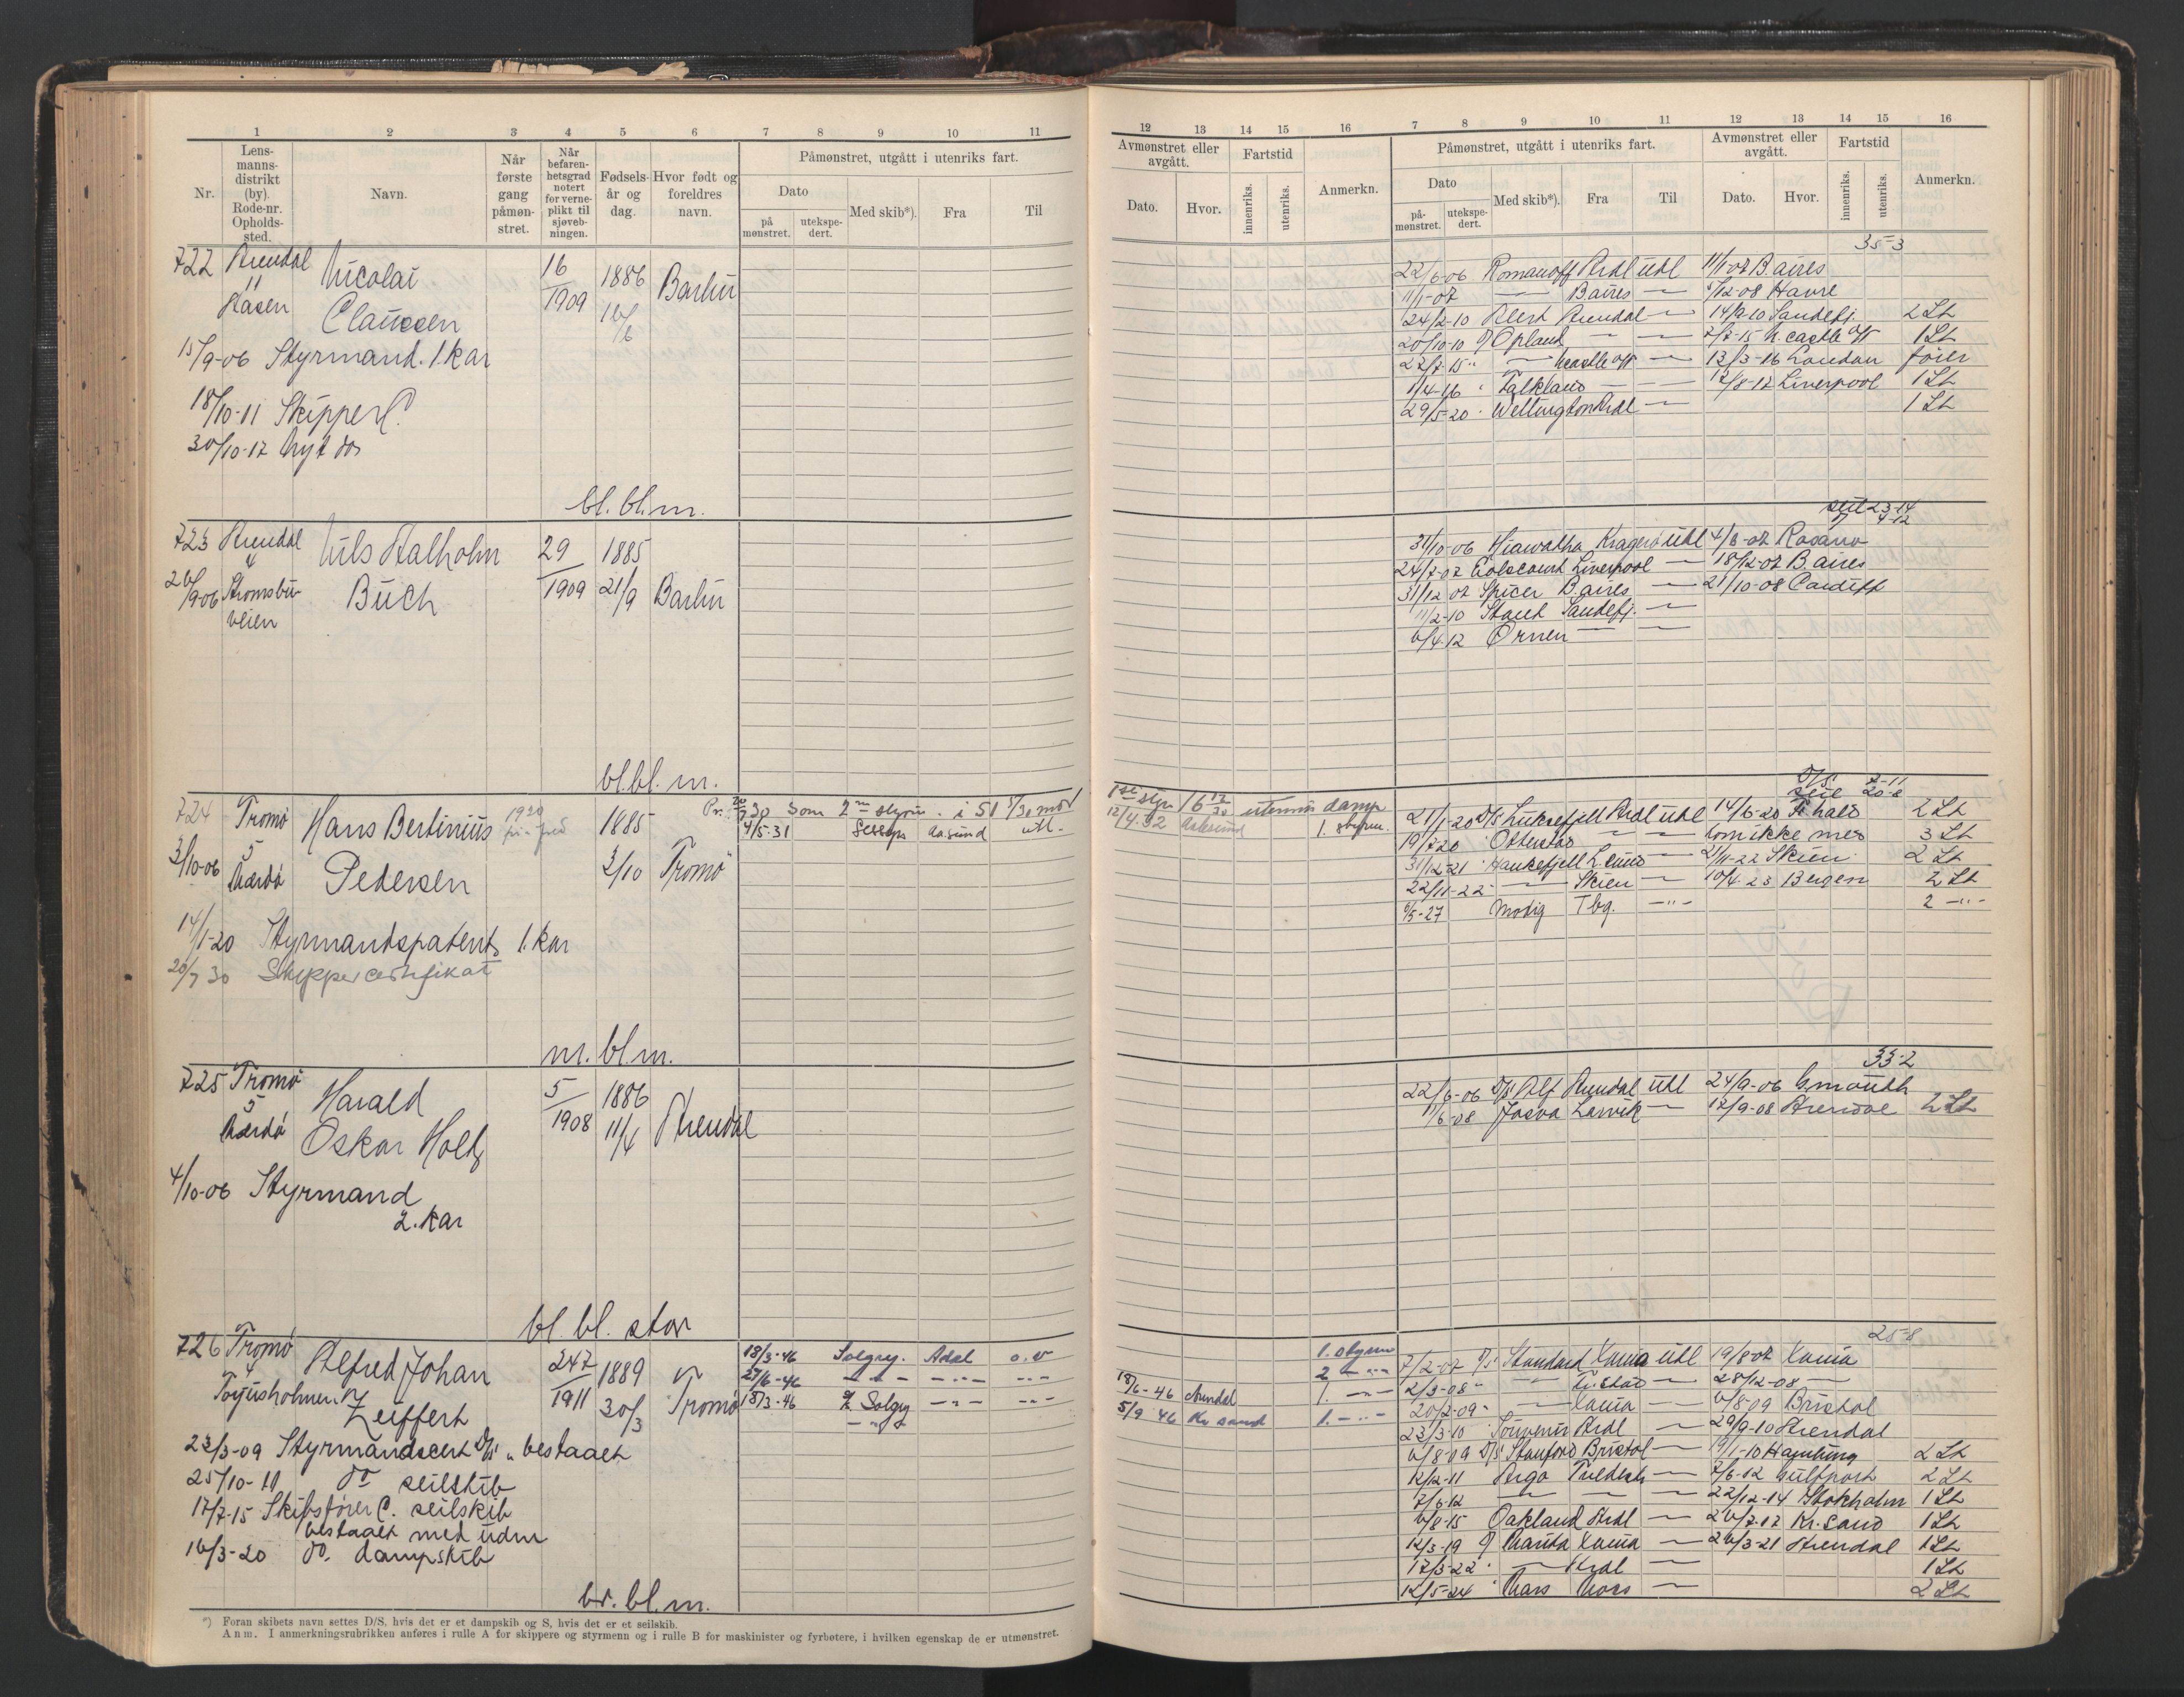 1 2 3 4 5 6 7 8 9 10 11
Nr. Lens-manns-distrikt (by). Rode-nr. Opholds-sted. Navn. Når første gang påmøn-stret. Når befaren-hetsgrad notert for verne-plikt til sjøveb-ningen. Fødsels-år og dag. Hvor født og foreldres navn. Påmønstret, utgått i utenriks fart.
Dato Med skib*). Fra Til
på mønstret. utekspe-dert.
722 Arendal Nicolai 16 1886 Barbu
11 1909 16/6
Claussen
15/9-06 Styrmand. 1. kar
18/10-11 Skipper C.
30/10-17 Nyt do
bl. bl. m.
723 Arendal Nils Aalholm 29 1885
4 1909 21/9 Barbu
26/9-06 Strømsbu-veien Buch
bl. bl. m.
724 Tromø Hans Bertinius 1930 1885 Pr. 20/7 30 som 2n styrm. i
5 4/5-31 Aasund utl.
3/10-06 Mærdø Pedersen 3/10 Tromø
14/1-20 Styrmandspatent 1. kar
20/7 30 Skippercertifikat
m. bl. m.
725 Tromø Harald 5 1886
5 Mærdø 1908 11/4 Arendal
Oskar Holt
4/10-06 Styrmand
2. kar
bl. bl. stor
726 Tromø Alfred Johan 247 1889 18/3-46 Solgry. Adal o. v
4 1911 30/3 Tromø 27/6-46 — — —
Torjusholmen Zeiffert 18/3-46 Solgry — —
23/3-09 Styrmandscert D/S bestaaet
25/10-10 do seilskib
17/7-15 Skibsfører C. seilskib
bestaaet med udm
16/3-20 do. dampskib
br. bl. m.
*) Foran skibets navn settes D/S, hvis det er et dampskib og S, hvis det er et seilskib.
Anm. I anmerkningsrubrikken anføres i rulle A for skippere og styrmenn og i rulle B for maskinister og fyrbøtere, i hvilken egenskap de er utmønstret.
12 13 14 15 16 7 8 9 10 11 12 13 14 15 16
Avmønstret eller avgått. Fartstid Anmerkn. Påmønstret, utgått i utenriks fart. Avmønstret eller avgått. Fartstid Anmerkn.
Dato. Hvor. innenriks. utenriks. Dato Med skib*). Fra Til Dato. Hvor. innenriks. utenriks.
på-mønstret. utekspe-dert.
35-3
22/6-06 Romanoff Ardl utl 11/1-07 B. aires
11/1-07 — B. aires — /12-08 Havre
24/2-10 Alert Arendal — 14/9-10 Sandefj. 2 St
20/10-10 Opland — — 7/7-15 N. castle 1 St
22/7-15 — — 13/3-16 London fører
1/4-16 Falkland — — 17/8-17 Liverpool 1 St
29/5-20 Wellington Ardl — 1 St
seil 23-14
4-12
31/10-06 Hiawatha Kragerø utl 4/6-07 Rosario
24/7-07 Liverpool — 18/12-07 B. aires
31/12 07 Spicer B. aires — 21/10-08 Cardiff
11/2-10 Sandefj. —
6/4-12 Ørnen — —
D/S 2-11
seil 20-8
1ste styr 16 12/30 utenriks damp
12/4.32 Aalesund 1. styrm.
21/1-20 D/S Ardl utl 14/6-20 Fr. hald 2 St
19/7 20 Otterstad — — kom ikke med 3 St
31/12-21 Haukefjell — 2/11-22 Skien 2 St
22/11-22 — Skien — 10/4-23 Bergen 2 St
6/5-27 Modig Tbg. —"— 2 —"—
33-2
22/6-06 D/S Alf Arendal utl 24/9-06
11/6-08 Larvik — 17/9-08 Arendal 2 St
25-8
1. styrm
2 —"—
18/6-46 Arendal 1. —"—
5/9 46 Kr sand 1. —"—
7/2-07 Standard Xania utl 19/8-07 Xania
2/3-08 — Fr.stad — 28/12-08 —
20/2-09 — Xania — 6/8-09 Bristol
23/3-10 Souvenir Ardl — 29/9-10 Arendal
6/8-09 D/S Stanford Bristol — 19/1-10 Hamburg 2 St
12/2-11 Argo — 7/6-12 Gulfport 2 St
7/6-12 — — — 22/12-14 Stokholm 1 St
6/8-15 Oakland Ardl — 26/7-17 Kr.sand 1 St
12/3-19 Xania — 26/3-21 Arendal 1 St
17/3-22 — Ardl — 1 St
12/5-24 Mars Moss — 2 St